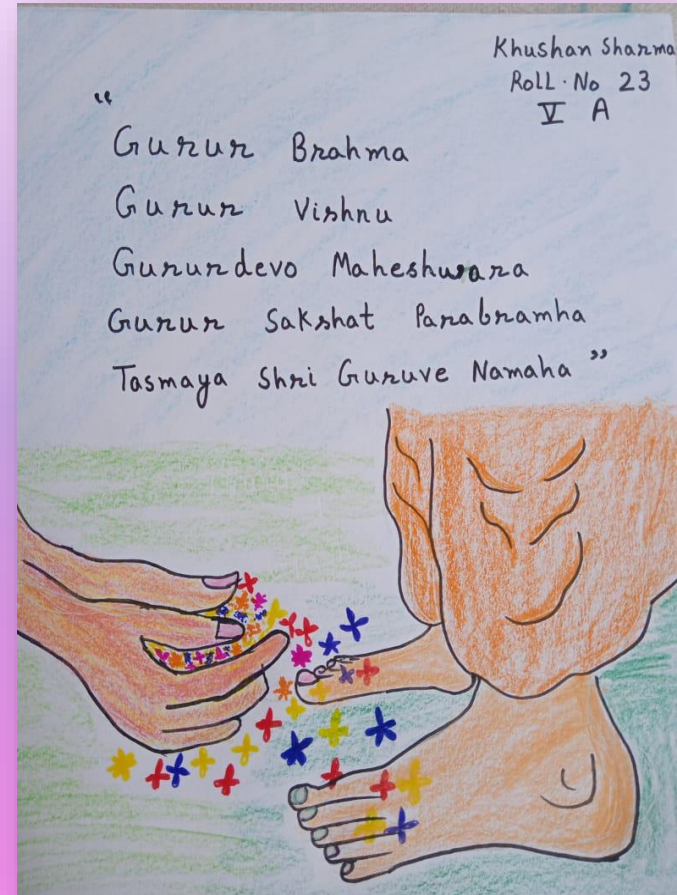 Khushan Sharma
Roll. No 23
V A
"
Gurur Brahma
Gurur Vishnu
Gururdevo Maheshwara
Gurur Sakshat Parabramha
Tasmaya Shri Guruve Namaha "